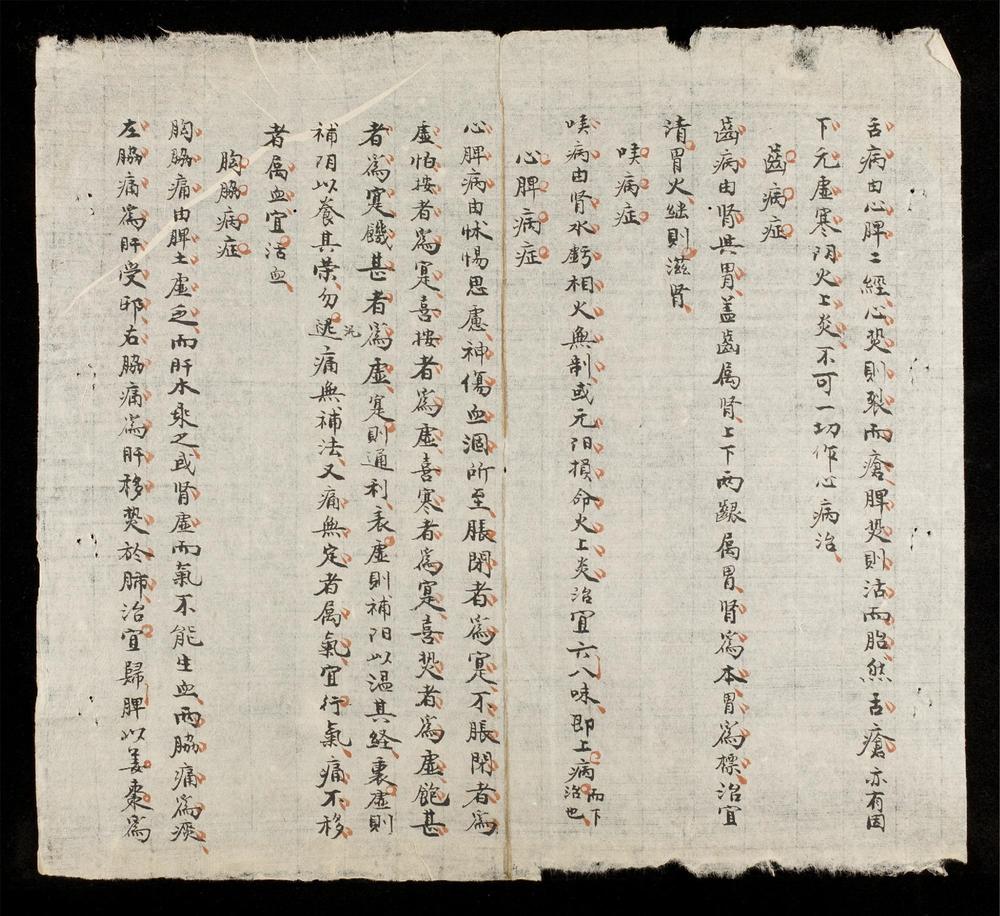 舌病由心脾二經心𤍠則裂而瘡脾𤍠則沽而胎然舌瘡亦有因
下元虛寒阴火上炎不可一切作心病治
齒病症
齒病由肾與胃盖齒属肾上下两齦属胃肾為本胃為標治宜
清胃火継則滋肾
喉病症
喉病由肾水虧相火無制或元阳損命火上炎治宜六八味即上病而下治也
心脾病症
心脾病由怵惕思慮神傷血涸所至脹閉者為寔不脹閉者為
虛怕按者為寔喜按者為虛喜寒者為寔喜𤍠者為虛飽甚
者為寔饑甚者為虛寔則通利表虛則補阳以温其経裏虛則
補阴以養其荣勿泥痛無補法又痛無定者属氣宜行氣痛不移
者属血宜活血
胸脇病症
胸脇痛由脾土虛乏而肝木乘之或肾虛而氣不能生血两脇痛為痰
左脇痛為肝受邪右脇痛為肝移𤍠於肺治宜歸脾以姜棗為